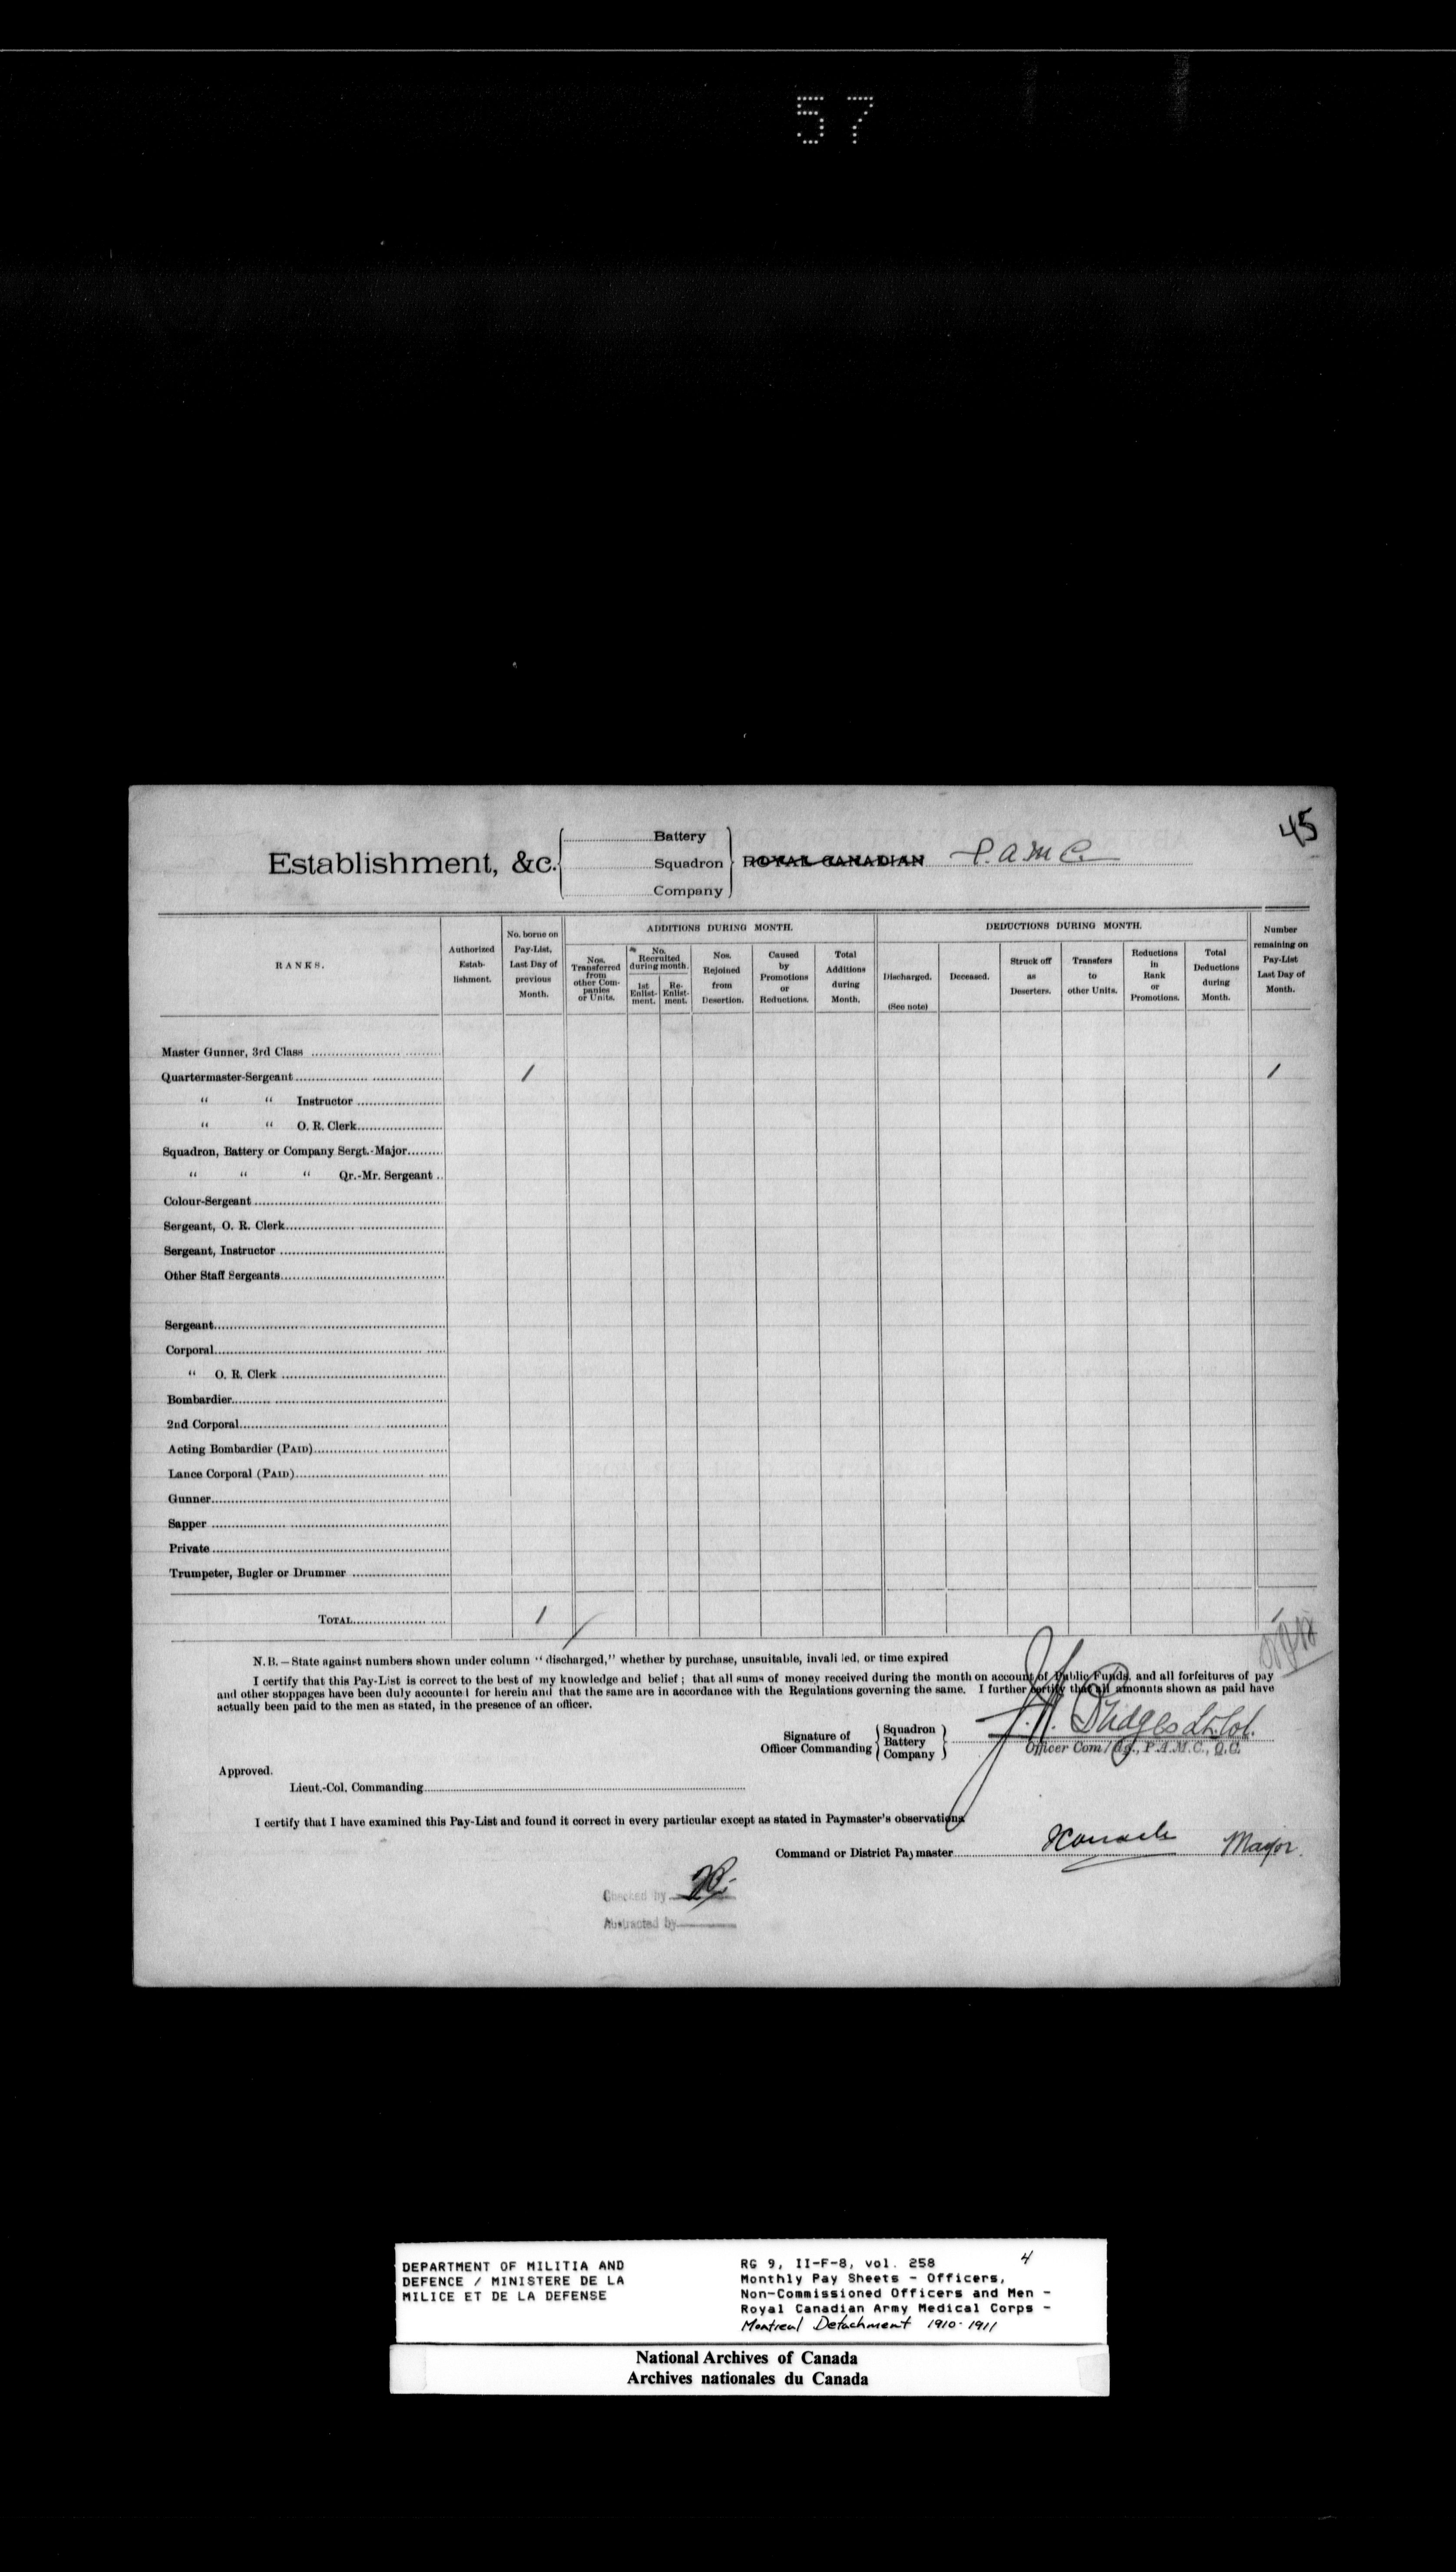 57
45
Establishment, &c.
Battery
Squadron
Company
ROYAL CANADIAN P.A.M.C.
RANKS.
Authorized Estab- lishment.
No. borne on Pay-List, Last Day of previous Month.
ADDITIONS DURING MONTH.
Nos. Transferred from other Com- panies or Units.
* No. Recruited during month.
1st Enlist- ment.
Re- Enlist- ment.
Nos. Rejoined from Desertion.
Caused by Promotions or Reductions.
Total Additions during Month.
DEDUCTIONS DURING MONTH.
Discharged. (See note)
Deceased.
Struck off as Deserters.
Transfers to other Units.
Reductions in Rank or Promotions.
Total Deductions during Month.
Number remaining on Pay-List Last Day of Month.
Master Gunner, 3rd Class
Quartermaster-Sergeant 1 1
“ “ Instructor
“ “ O. R. Clerk
Squadron, Battery or Company Sergt.-Major
“ “ “ Qr.-Mr. Sergeant
Colour-Sergeant
Sergeant, O. R. Clerk
Sergeant, Instructor
Other Staff Sergeants
Sergeant
Corporal
“ O. R. Clerk
Bombardier
2nd Corporal
Acting Bombardier (PAID)
Lance Corporal (PAID)
Gunner
Sapper
Private
Trumpeter, Bugler or Drummer
TOTAL 1 1
N.B.—State against numbers shown under column “discharged,” whether by purchase, unsuitable, invali led, or time expired
I certify that this Pay-List is correct to the best of my knowledge and belief; that all sums of money received during the month on account of Public Funds, and all forfeitures of pay
and other stoppages have been duly accounted for herein and that the same are in accordance with the Regulations governing the same. I further certify that all amounts shown as paid have
actually been paid to the men as stated, in the presence of an officer.
Signature of Officer Commanding
Squadron
Battery
Company
Lt. Col.
Officer Com'dg., P.A.M.C., Q.C.
Approved.
Lieut.-Col. Commanding
I certify that I have examined this Pay-List and found it correct in every particular except as stated in Paymaster's observations
Command or District Paymaster Major.
Checked by
Abstracted by
DEPARTMENT OF MILITIA AND
DEFENCE / MINISTERE DE LA
MILICE ET DE LA DEFENSE
RG 9, II-F-8, vol. 258 4
Monthly Pay Sheets - Officers,
Non-Commissioned Officers and Men -
Royal Canadian Army Medical Corps -
Montreal Detachment 1910-1911
National Archives of Canada
Archives nationales du Canada